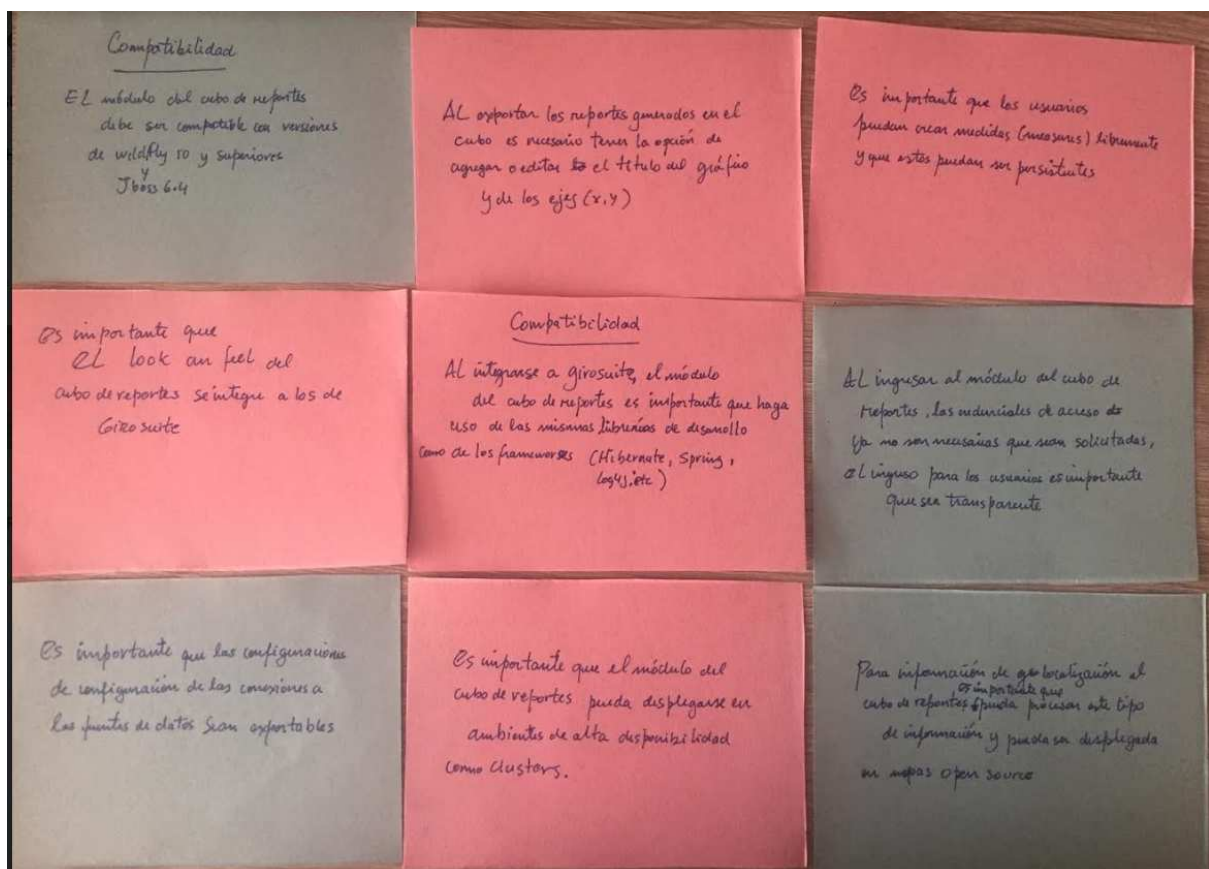 Compatibilidad
EL módulo del cubo de reportes
debe ser compatible con versiones
de wildfly 10 y superiores
y
Jboss 6.4
AL exportar los reportes generados en el
cubo es necesario tener la opción de
agregar o editar el título del gráfico
y de los ejes (x,y)
Es importante que los usuarios
puedan crear medidas (measures) libremente
y que estas puedan ser persistentes
Es importante que
el look an feel del
cubo de reportes se integre a los de
Giro suite
Compatibilidad
AL integrarse a girosuite, el módulo
del cubo de reportes es importante que haga
uso de las mismas librerías de desarrollo
como de los frameworks (Hibernate, Spring,
log4j, etc)
AL ingresar al módulo del cubo de
reportes, las credenciales de acceso
ya no son necesarias que sean solicitadas,
el ingreso para los usuarios es importante
que sea transparente
Es importante que las configuraciones
de configuración de las conexiones a
las fuentes de datos sean exportables
Es importante que el módulo del
cubo de reportes pueda desplegarse en
ambientes de alta disponibilidad
como clusters.
Para información de geolocalización el
cubo de reportes es importante que pueda procesar este tipo
de información y pueda ser desplegada
en mapas open source